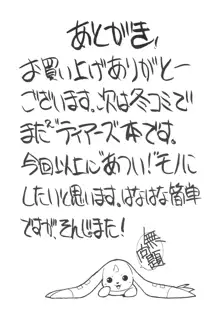 あとがき！
お買い上げありがとー
ございます。次は冬コミで
まだまだティアーズ本です。
今回以上に"あつい!"モノに
したいと思います。はなはな簡単
ですが、そんじまた!
無問題